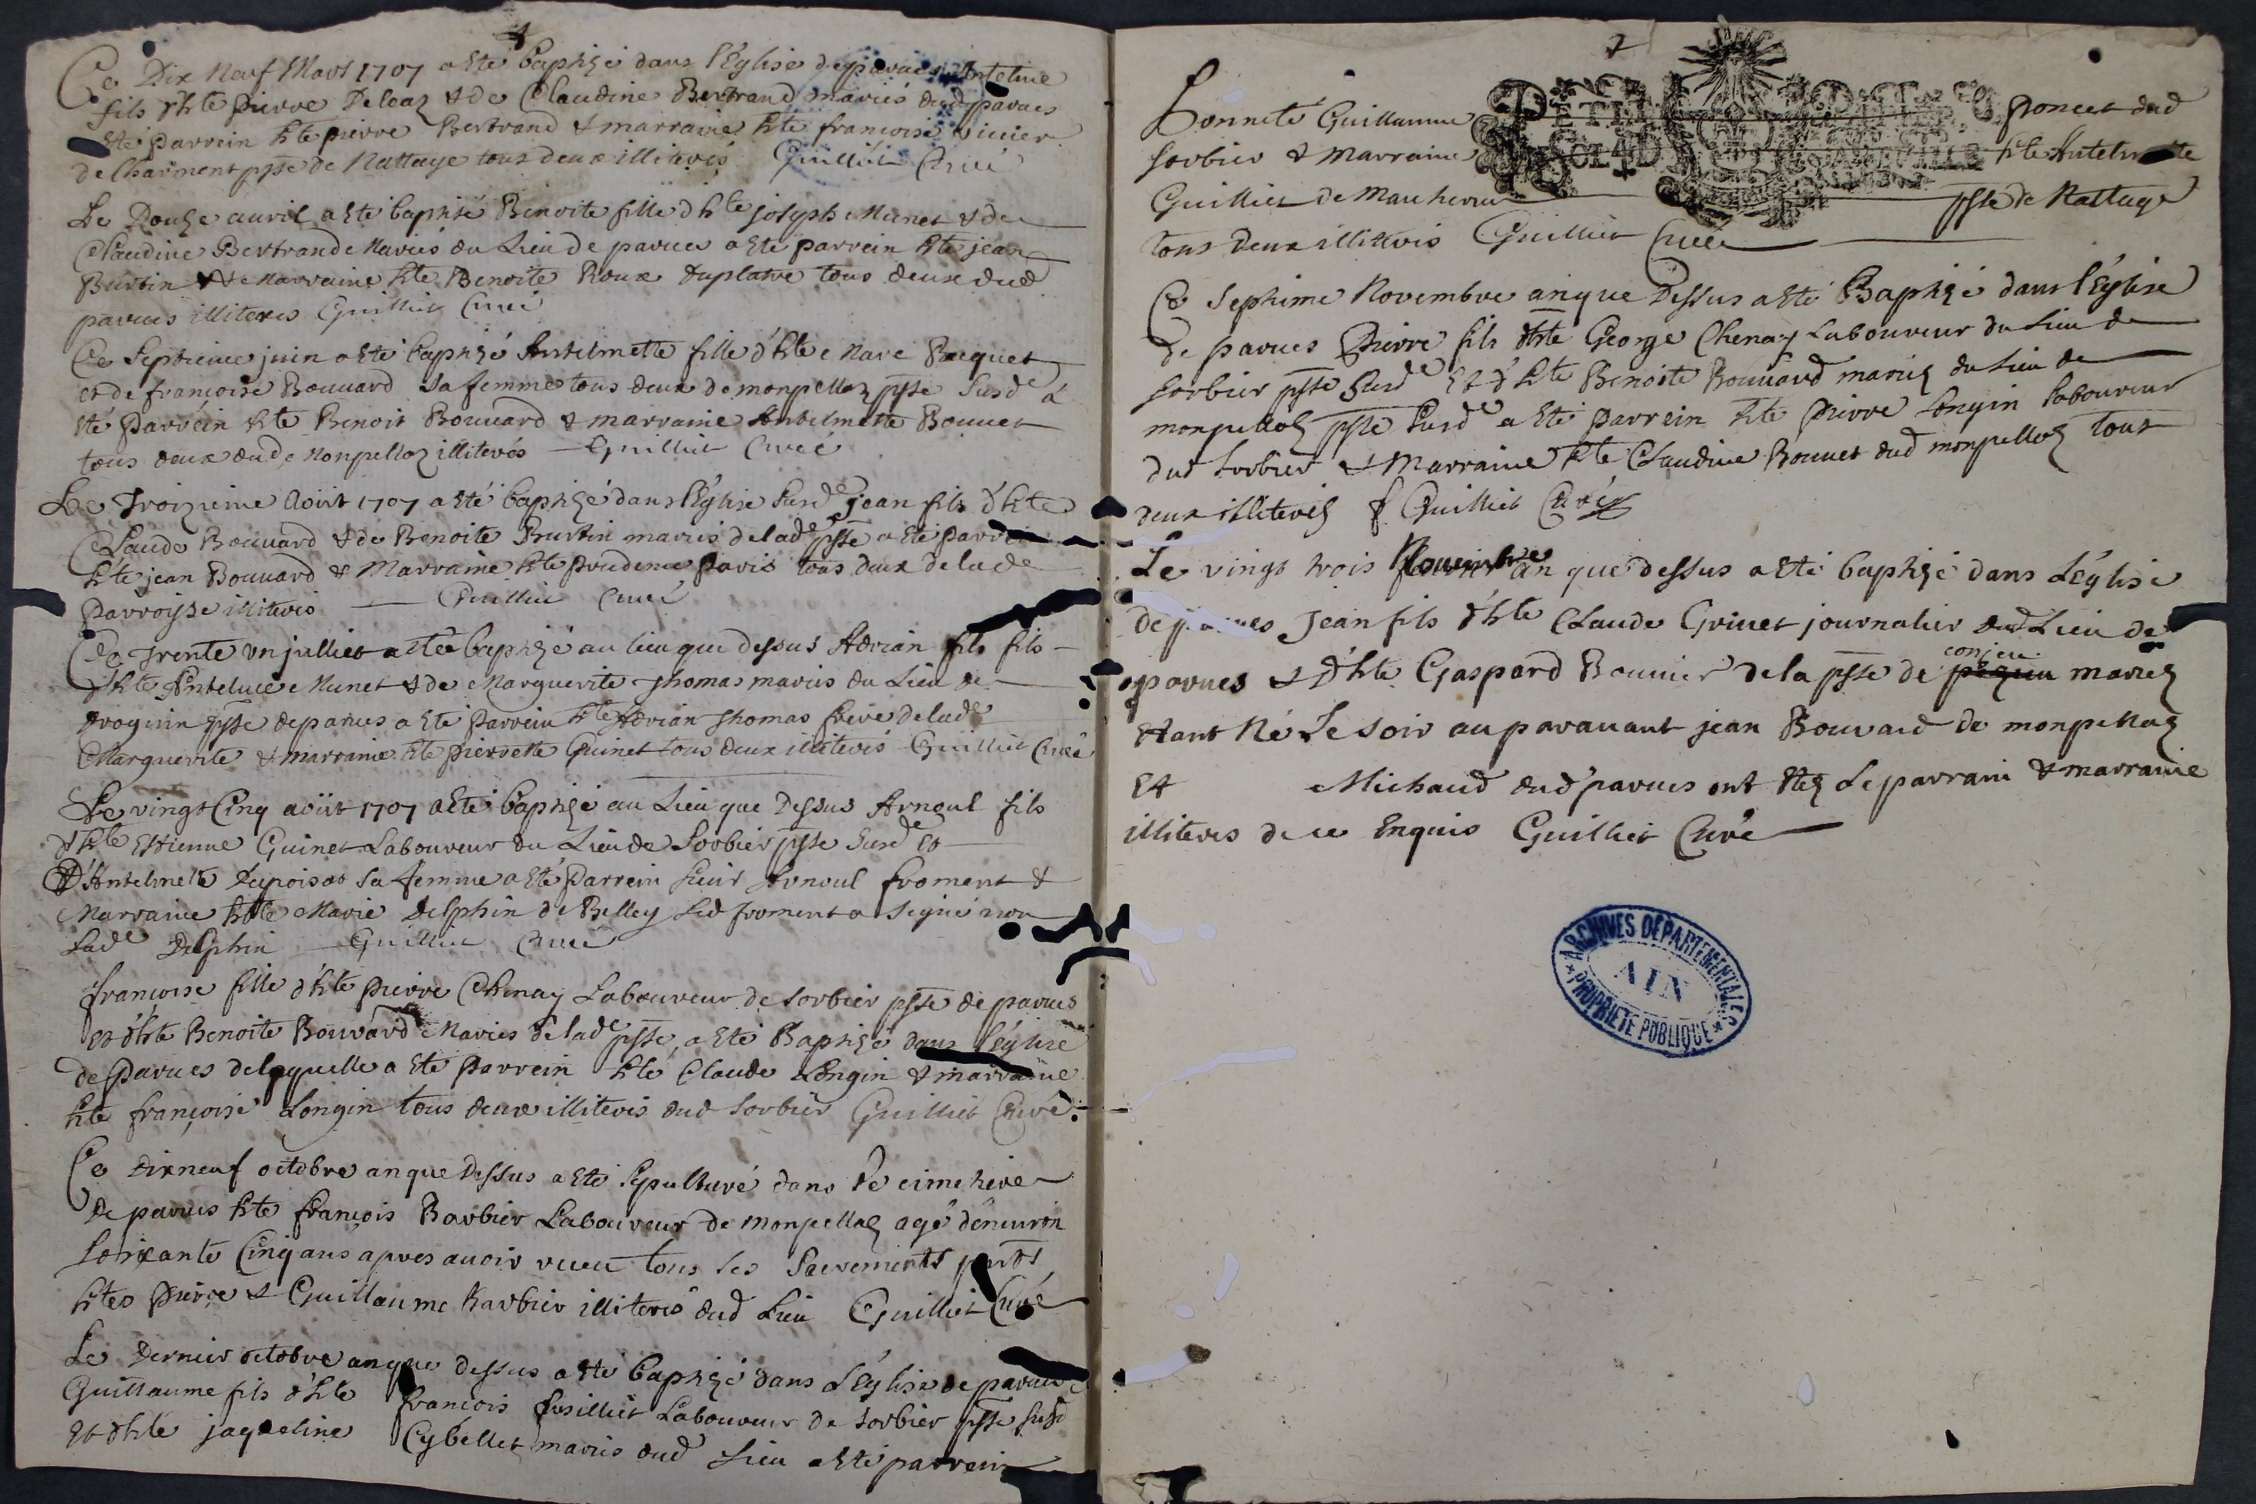 Ce Dix Neuf Mars 1707 a Eté baptizé dans l'Eglise de parues Antelme
fils d'hte pierre Deleaz & de Claudine Bertrand mariés dud parues
Eté parrein hte pierre Bertrand & marraine hte francoise
de Charment psse de Nattage tous deux illiterés Guilliet Curé
Le Douze auril a Eté baptisé Benoite fille d'hte joseph Munet & de
Claudine Bertrande Mariés du Lieu de parues a Eté parrein hte jean
Burtin & de Marraine hte Benoite Roux duplatre tous deux dud
parues illiteres Guilliet Curé
Ce Septieme juin a Eté baptizé Antelmette fille d'hte Marc Bacquet
et de francoise Bouuard sa femme tous deux de monpellaz psse susde a
Eté parrein hte Benoit Bouuard & marraine Antelmette Bonnet
tous deux dude Monpellaz illiterés Guilliet Curé
Le Troizieme Aoüt 1707 a eté baptizé dans l'Eglise susde jean fils d'hte
Claude Bouuard & de Benoite Burtin mariés de lade psse a Eté parrein
hte jean Bouuard & Marraine hte prudence paris tous deux de lade
Parroisse illiterés Guilliet Curé
Ce Trente un julliet a Eté baptizé au lieu que dessus Adrian fils fils
d'hte Antelme Munet & de Marguerite Thomas mariés du Lieu de
psse de parues a Eté parrein hte Adrian Thomas frère de lade
Marguerite & marraine hte pierrette Guinet tous deux illiterés Guilliet Curé
Le vingt Cinq aoüt 1707 a Eté baptizé au Lieu que Dessus Arnoul fils
d'hte Etienne Guinet Laboureur du Lieu de Sorbier psse susde et
D'Antelmette Dupoisat sa femme a Eté Parrein sieur Arnoul froment &
Marraine hte Marie Delphin de Belley Led froment a signé non
Lade Delphin Guilliet Curé
francoise fille d'hte pierre Chenay Laboureur de sorbier psse de parues
et d'hte Benoite Bouuard Mariés de lade psse, a Eté Baptizé dans l'Eglise
de parues de laquelle a Eté parrein hte Claude Longin & marraine
hte françoise Longin tous deux illiterés dud sorbier Guilliet Curé
Ce Dixneuf octobre an que Dessus a Eté sepulturé dans le cimetiere
de parues hte francois Barbier Laboureur de monpellaz agé d'enuiron
soixante Cinq ans apres auoir receu tous les Sacrements
htes pierre & Guillaume Barbier illiteres dud Lieu Guilliet Curé
Le Dernier octobre an que dessus a Eté baptizé dans L'Eglise de parues
Guillaume fils d'hte francois Guilliet Laboureur de sorbier psse susd
Et d'hte jaqueline Cybellet mariés dud Lieu a Eté parrein
Honneté Guillaume Poncet dud
sorbier & Marraine hte Antelmette
Guilliet de psse de Nattage
tous deux illiterés Guilliet Curé
Ce Septieme Nouembre an que Dessus a Eté Baptizé dans l'Eglise
de parues Pierre fils d'hte George Chenay Laboureur du Lieu de
sorbier psse susde Et d'hte Benoite Bouuard mariez du Lieu de
monpellaz psse susde a Eté parrein hte pierre Longin laboureur
dud sorbier & Marraine hte Claudine Bonnet dud monpellaz tous
deux illiterez Guilliet Curé
Le vingt trois Nouembre an que dessus a Eté baptizé dans L'Eglise
de parues Jean fils d'hte Claude Griuet journalier dud Lieu de
parues & d'hte Gaspard Bounier de la psse de mariez
Etant Né Le soir auparauant jean Bouuard de monpellaz
Et Michaud dud parues ont Etez Le parrain & marraine
illiteres de ce Enquis Guilliet Curé
ARCHIVES DEPARTEMENTALES
AIN
PROPRIETE PUBLIQUE